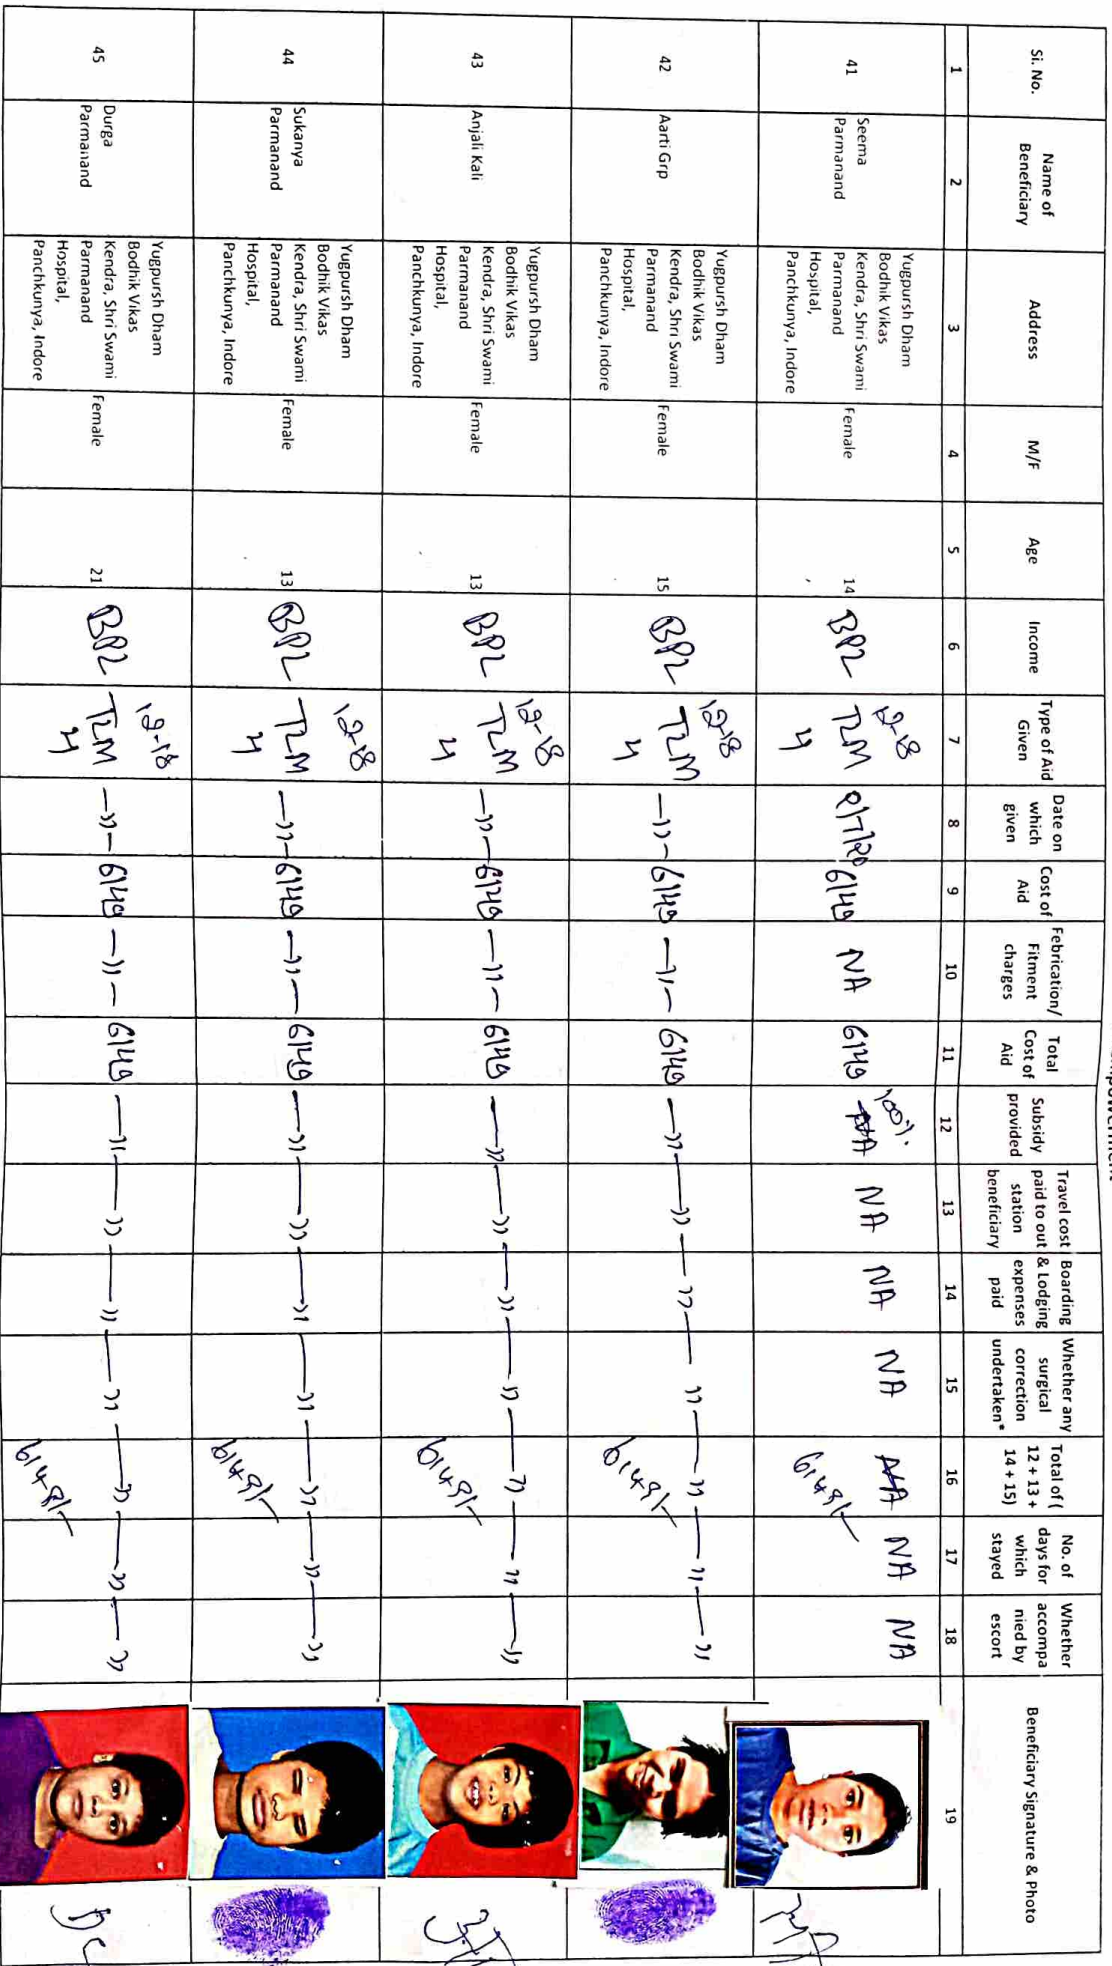 Empowerment
Si. No. | Name of Beneficiary | Address | M/F | Age | Income | Type of Aid Given | Date on which given | Cost of Aid | Febrication/ Fitment charges | Total Cost of Aid | Subsidy provided | Travel cost paid to out station beneficiary | Boarding & Lodging expenses paid | Whether any surgical correction undertaken* | Total of ( 12 + 13 + 14 + 15) | No. of days for which stayed | Whether accompa nied by escort | Beneficiary Signature & Photo
1 | 2 | 3 | 4 | 5 | 6 | 7 | 8 | 9 | 10 | 11 | 12 | 13 | 14 | 15 | 16 | 17 | 18 | 19
41 | Seema Parmanand | Yugpursh Dham Bodhik Vikas Kendra, Shri Swami Parmanand Hospital, Panchkunya, Indore | Female | 14 | BPL | 12-18 TLM 4 | 8/7/20 | 6149 | NA | 6149 | 100% NA | NA | NA | NA | NA 6149/- | NA | NA
42 | Aarti Grp | Yugpursh Dham Bodhik Vikas Kendra, Shri Swami Parmanand Hospital, Panchkunya, Indore | Female | 15 | BPL | 12-18 TLM 4 | —"— | 6149 | —"— | 6149 | —"— | "— | "— | "— | " 6149/- | —"— | "
43 | Anjali Kali | Yugpursh Dham Bodhik Vikas Kendra, Shri Swami Parmanand Hospital, Panchkunya, Indore | Female | 13 | BPL | 12-18 TLM 4 | —"— | 6149 | —"— | 6149 | —"— | "— | "— | "— | " 6149/- | —"— | "
44 | Sukanya Parmanand | Yugpursh Dham Bodhik Vikas Kendra, Shri Swami Parmanand Hospital, Panchkunya, Indore | Female | 13 | BPL | 12-18 TLM 4 | —"— | 6149 | —"— | 6149 | —"— | "— | "— | "— | " 6149/- | —"— | "
45 | Durga Parmanand | Yugpursh Dham Bodhik Vikas Kendra, Shri Swami Parmanand Hospital, Panchkunya, Indore | Female | 21 | BPL | 12-18 TLM 4 | —"— | 6149 | —"— | 6149 | —"— | "— | "— | "— | " 6149/- | —"— | "